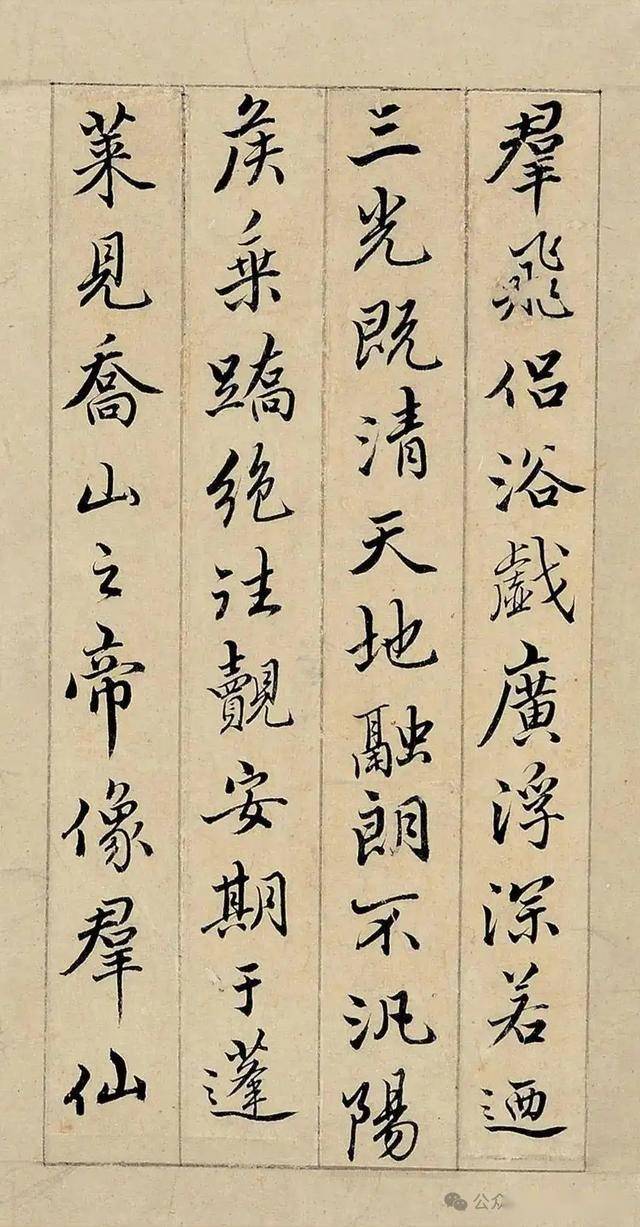 羣飛侶浴戲廣浮深若迺
三光既清天地融朗不汎陽
矦乗蹻絶往覿安期于蓬
萊見喬山之帝像羣仙
公众